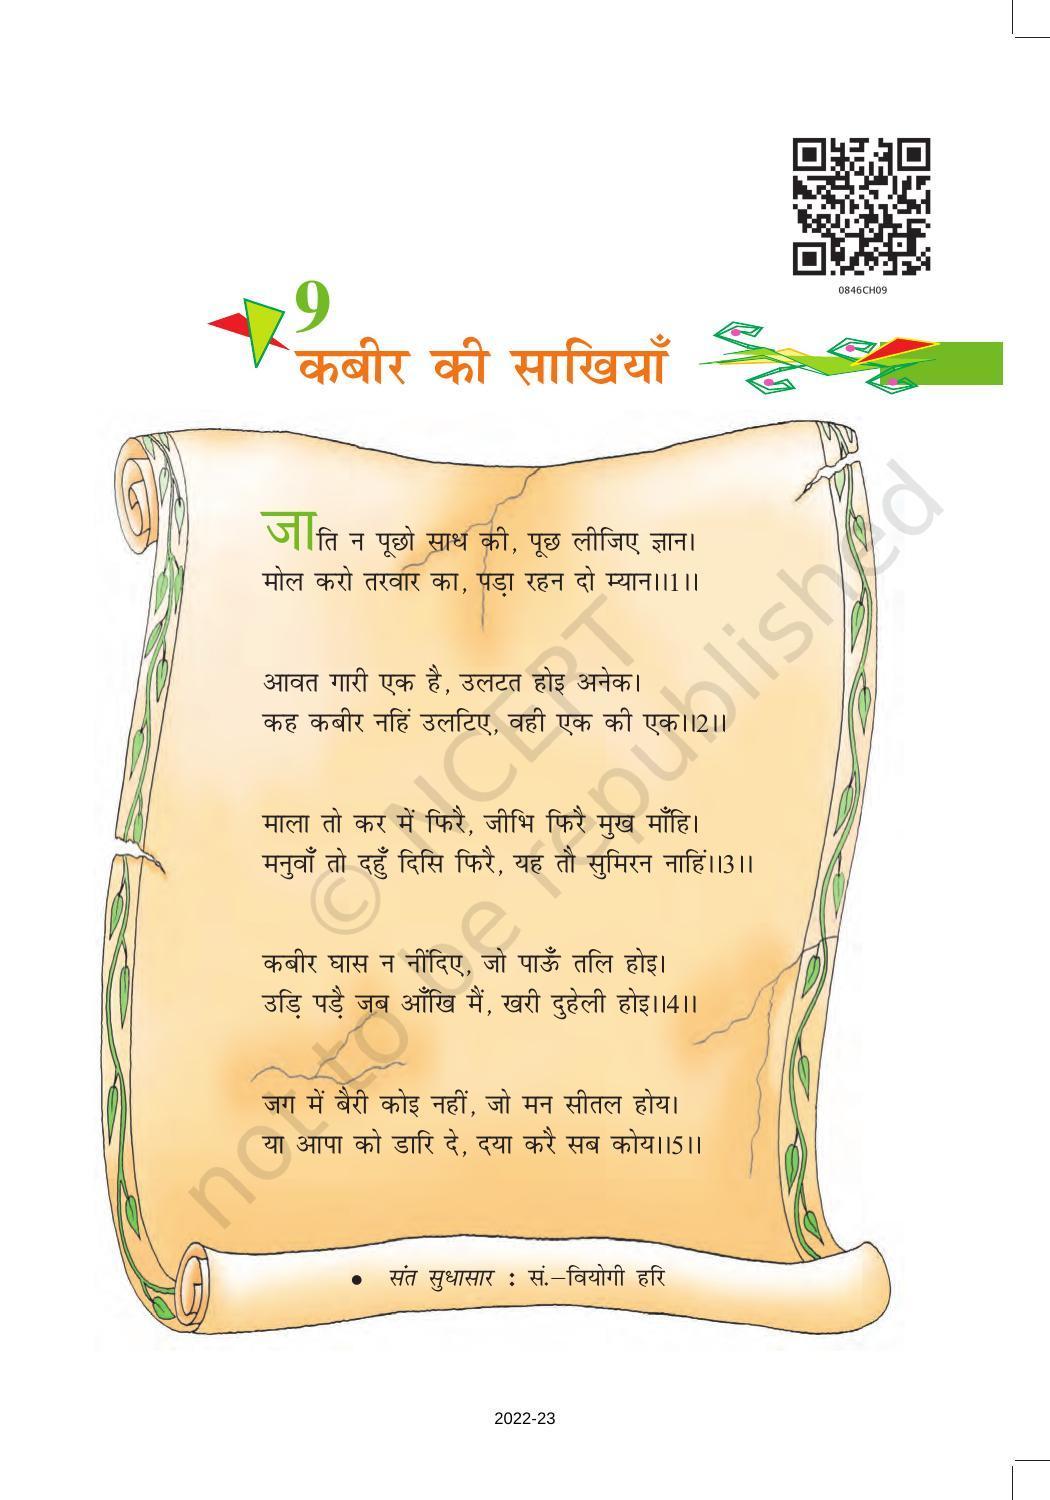 0846CH09
9
कबीर की साखियाँ
जाति न पूछो साध की, पूछ लीजिए ज्ञान।
मोल करो तरवार का, पड़ा रहन दो म्यान।।1।।
आवत गारी एक है, उलटत होइ अनेक।
कह कबीर नहिं उलटिए, वही एक की एक।।2।।
माला तो कर में फिरै, जीभि फिरै मुख माँहि।
मनुवाँ तो दहुँ दिसि फिरै, यह तौ सुमिरन नाहिं।।3।।
कबीर घास न नींदिए, जो पाऊँ तलि होइ।
उड़ि पड़ै जब आँखि मैं, खरी दुहेली होइ।।4।।
जग में बैरी कोइ नहीं, जो मन सीतल होय।
या आपा को डारि दे, दया करै सब कोय।।5।।
• संत सुधासार : सं.–वियोगी हरि
© NCERT
not to be republished
2022-23